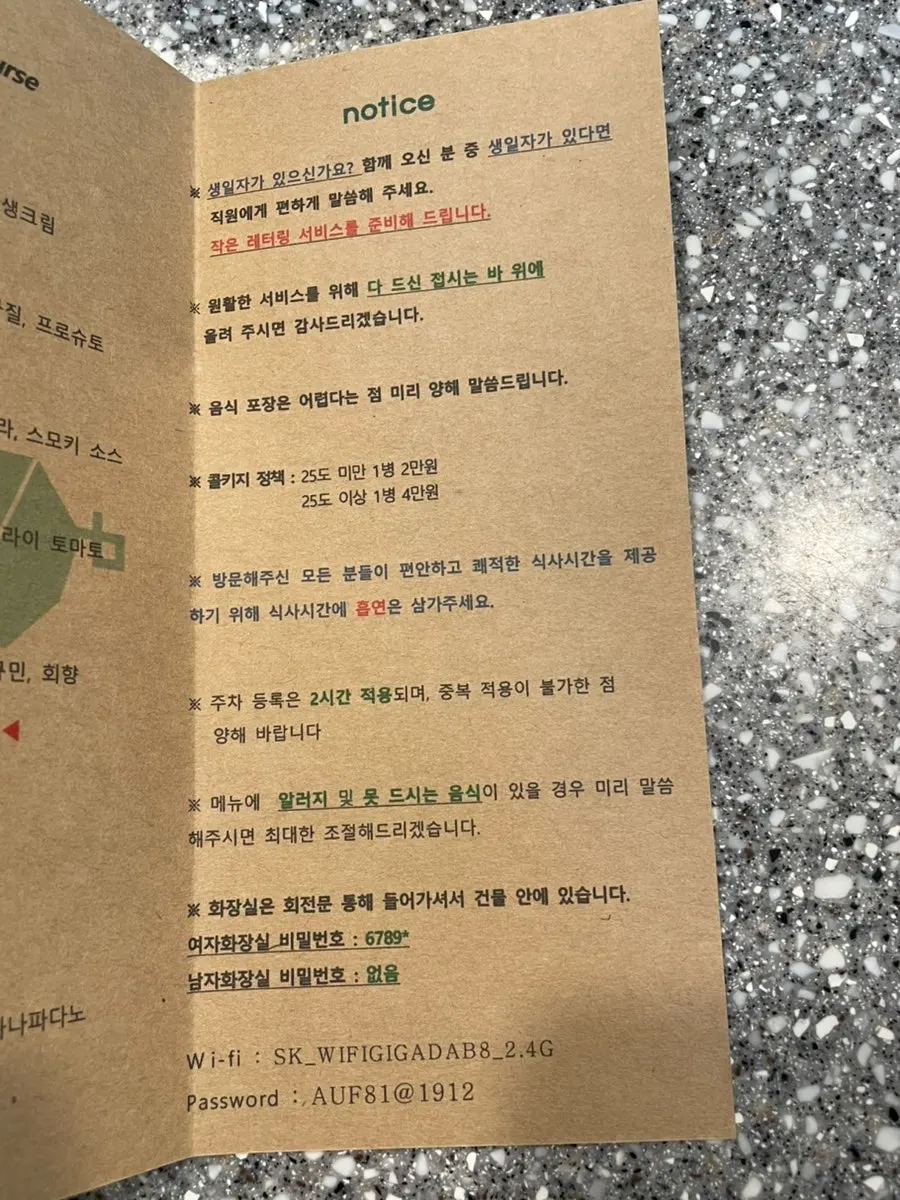 urse
생크림
질, 프로슈토
라, 스모키 소스
라이 토마토
민, 회향
나파다노
notice
※ 생일자가 있으신가요? 함께 오신 분 중 생일자가 있다면
직원에게 편하게 말씀해 주세요.
작은 레터링 서비스를 준비해 드립니다.
※ 원활한 서비스를 위해 다 드신 접시는 바 위에
올려 주시면 감사드리겠습니다.
※ 음식 포장은 어렵다는 점 미리 양해 말씀드립니다.
※ 콜키지 정책 : 25도 미만 1병 2만원
25도 이상 1병 4만원
※ 방문해주신 모든 분들이 편안하고 쾌적한 식사시간을 제공
하기 위해 식사시간에 흡연은 삼가주세요.
※ 주차 등록은 2시간 적용되며, 중복 적용이 불가한 점
양해 바랍니다
※ 메뉴에 알러지 및 못 드시는 음식이 있을 경우 미리 말씀
해주시면 최대한 조절해드리겠습니다.
※ 화장실은 회전문 통해 들어가셔서 건물 안에 있습니다.
여자화장실 비밀번호 : 6789*
남자화장실 비밀번호 : 없음
Wi-fi : SK_WIFIGIGADAB8_2.4G
Password : AUF81@1912